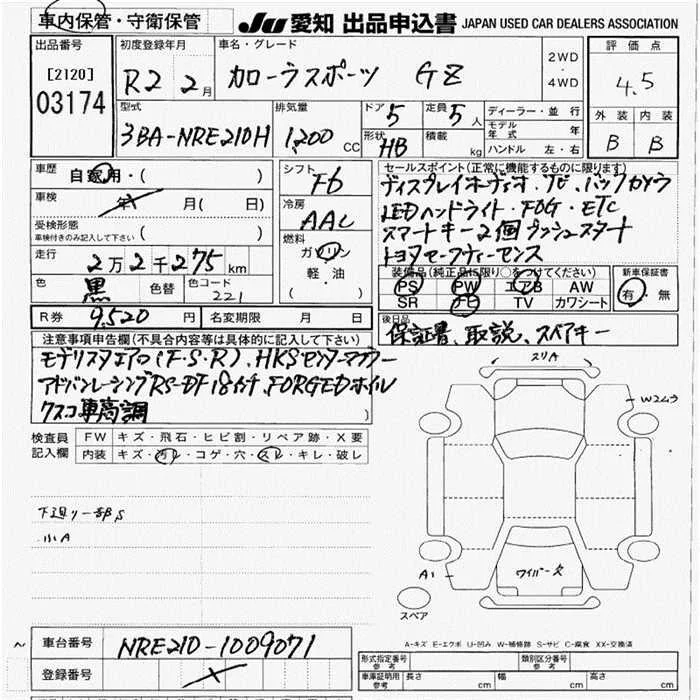 車内保管・守衛保管
JU 愛知 出品申込書 JAPAN USED CAR DEALERS ASSOCIATION
出品番号
[2120]
03174
初度登録年月
R2 2月
車名・グレード
カローラスポーツ GZ
2WD
・
4WD
評価点
4.5
外装 内装
B B
型式
3BA-NRE210H
排気量
1,200 CC
ドア 5
形状 HB
定員 5人
積載 kg
ディーラー・並行
モデル年式 年
ハンドル 左・右
車歴 自家用・( )
車検 年 月( 日)
受検形態
車検付きのみ記入して下さい ( )
走行 2万2千275km
色 黒 色替 色コード 221
シフト
F6
冷房
AAC
燃料
ガソリン
軽・油
( )
R券 9,520円 名変期限 月 日
セールスポイント(正常に機能するものに限ります)
ディスプレイオーディオ・TV・バックカメラ
LEDヘッドライト・FOG・ETC
スマートキー2個 プッシュスタート
トヨタセーフティーセンス
装備品(純正品に限り○をつけてください)
PS PW エアB AW
SR TV カワシート
新車保証書
有・無
後日品
保証書、取説、スペアキー
注意事項申告欄(不具合内容等は具体的に記入して下さい)
モデリスタエアロ(F・S・R)、HKSセンターマフラー
アドバンレーシングRS-DF 18インチ、FORGEDホイル
クスコ車高調
検査員
記入欄
FW キズ・飛石・ヒビ割・リペア跡・X要
内装 キズ・汚レ・コゲ・穴・スレ・キレ・破レ
下廻り一部S
小A
スリA
W2ムラ
A1
ワイパー欠
スペア
A-キズ E-エクボ U-凹み W-補修跡 S-サビ C-腐食 XX-交換済
車台番号 NRE210-1009071
登録番号
形式指定番号
参考
類別区分番号
参考
車庫証明用
参考
長さ cm 幅 cm 高さ cm